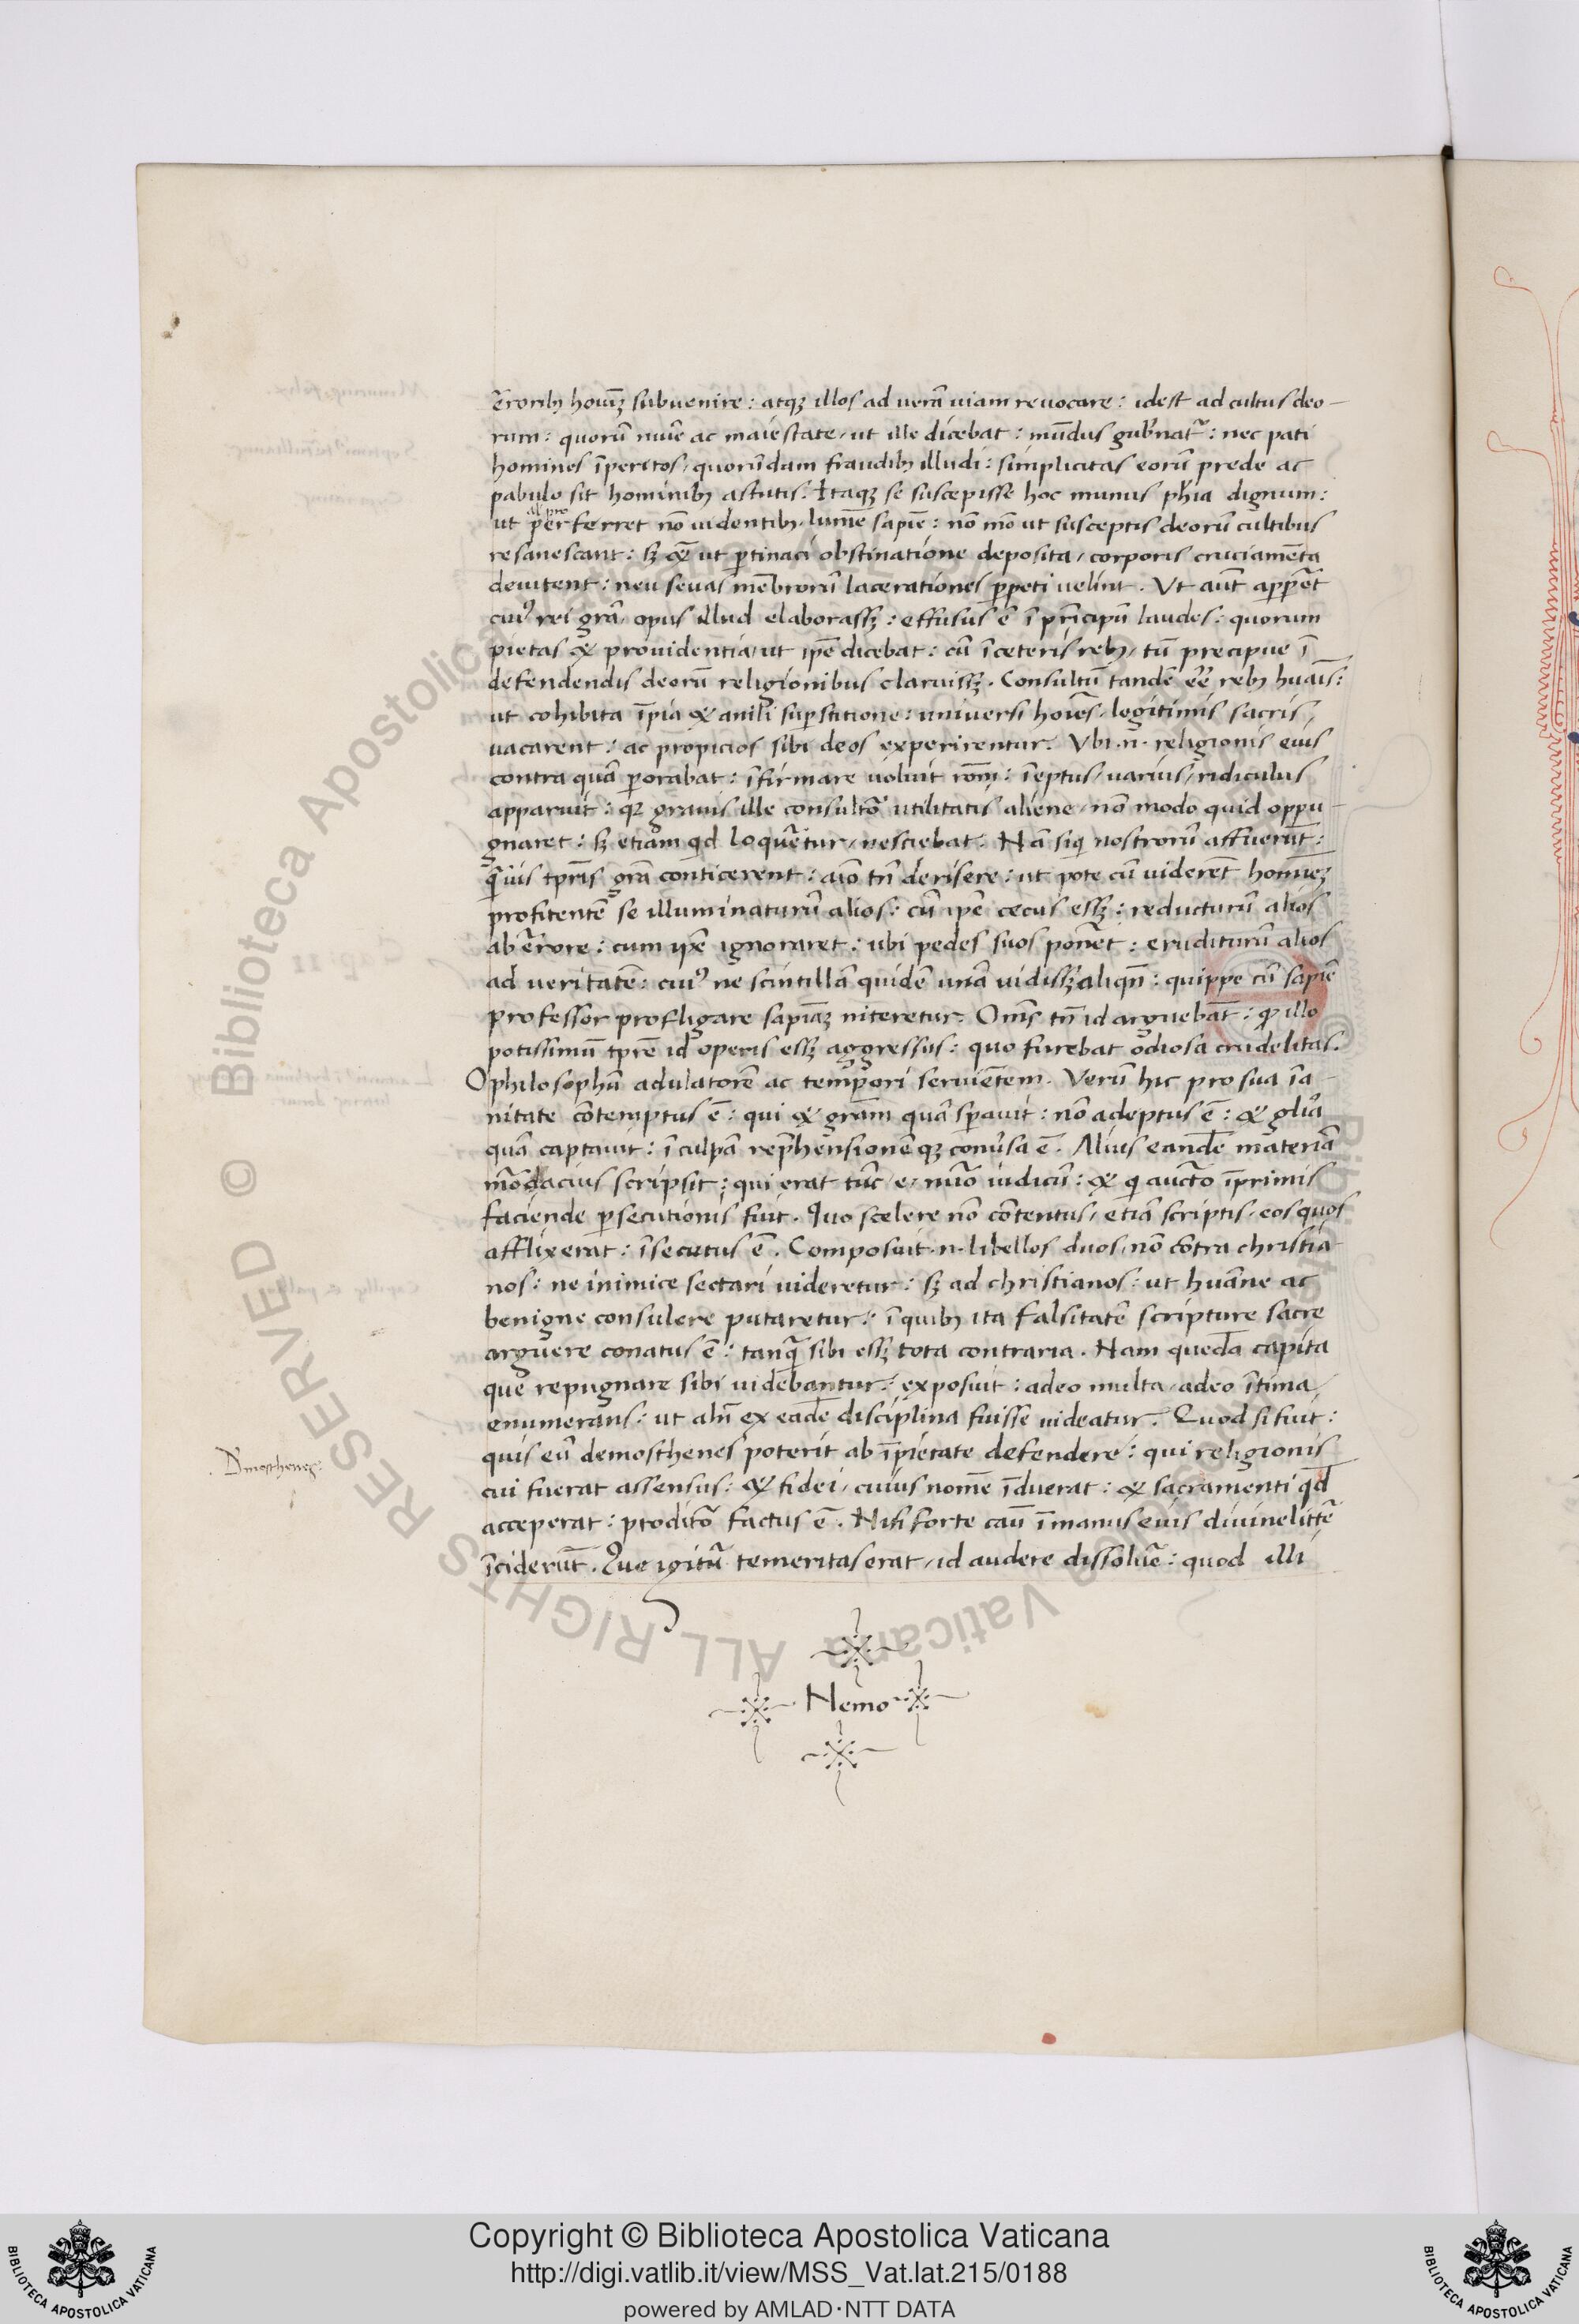 erroribꝫ hoıu̅ꝫ subvenire : atqꝫ illos ad verā viam revocare : idest ad cultus deo-
rum : quorū nuıe ac maiestate, ut ille dicebat : mūdus gub'natr̃ : nec pati
homines īperitos, quorūdam fraudibꝫ illudi : simplicitas eorū prede ac
pabulo sit hominibꝫ astutis. Itaqꝫ se suscepisse hoc munus ph'ia dignum :
al pre
ut perferret nō videntibꝫ, lumē sapıē : nō mō ut susceptis deorū cultibus
resanescant : sꝫ & ut ptinaci obstinatione deposita, corporis cruciamēta
devitent : neu sevas mēbrorū lacerationes ppeti velint. Ut aūt appẽt
cui' rei grā, opus illud elaborassꝫ : effusus ē ī prīcipū laudes : quorum
pietas & providentia, ut ipē dicebat : cū īceteris rebꝫ, tū precipue ī
defendendis deorū religionibus claruissꝫ. Consultū tandē eē rebꝫ huaīs :
ut cohibita īpia & anili supstitione : universi hoıēs, legitimis sacris,
vacarent : ac propicios sibi deos experirentur. Ubi .n. religionis eius
contra quā porabat : īfirmare voluit rōnꝫ : īeptus, varius, ridiculus
apparuit : qꝫ gravis ille consultō utilitatis aliene, nō modo quid oppu-
gnaret : sꝫ etiam qd loqueretur, nesciebat. Nā siq nostrorū affuerūt :
q̄vis tpris grā conticerent : aīo tn̄ derisere : ut pote cū viderēt hominēꝫ
profitentē se illuminaturū alios : cū ipē cecus essꝫ : reducturū alios
ab errore : cum ipē ignoraret : ubi pedes suos ponēt : eruditurū alios
ad veritatē : cui' ne scintillā quidē unā vidissꝫ aliqn̄ : quippe cū sapıē
professor profligare sapıāꝫ niteretur. Oms tn̄ id arguebāt : q illo
potissimū tpre id operis essꝫ aggressus : quo furebat odiosa crudelitas.
O philosophū adulatorē ac tempori serviētem. Verū hic pro sua īa-
nitate cōtemptus ē : qui & grām quā spavit : nō adeptus ē : & gl'ia
quā captavit : ī culpā rep̄hensionēqꝫ conv'sa ē. Alius eandē materiā
mōdacius scripsit : qui erat tūc, e, nuō iudicū : & q auctō īprimis
faciende psecutionis fuit. Quo scelere nō cōtentus, etiā scriptis, eos quos
afflixerat : īsecutus ē. Composuit .n. libellos duos, nō cōtra christia
nos : ne inimice sectari videretur : sꝫ ad christianos : ut huāne ac
benigne consulere putaretur : ī quibꝫ ita falsitatē scripture sacre
arguere conatus ē : tanq̄ sibi essꝫ tota contraria. Nam quedā capita
que repugnare sibi videbantur : exposuit : adeo multa, adeo ītima,
enumerans : ut alıq̄ ex eadē disciplina fuisse videatur. Quod si fuit :
quis eū demosthenes poterit ab īpietate defendere : qui religionis
cui fuerat assensus : & fidei, cuius nomē īduerat : & sacramenti qd
acceperat : proditō factus ē. Nisi forte casū ī manus eius divine littē
īciderūt. Que igitū temeritas erat, id audere dissolvē : quod illi
Nemo
Dmosthenes :
Copyright © Biblioteca Apostolica Vaticana
http://digi.vatlib.it/view/MSS_Vat.lat.215/0188
powered by AMLAD·NTT DATA
BIBLIOTECA APOSTOLICA VATICANA
BIBLIOTECA APOSTOLICA VATICANA